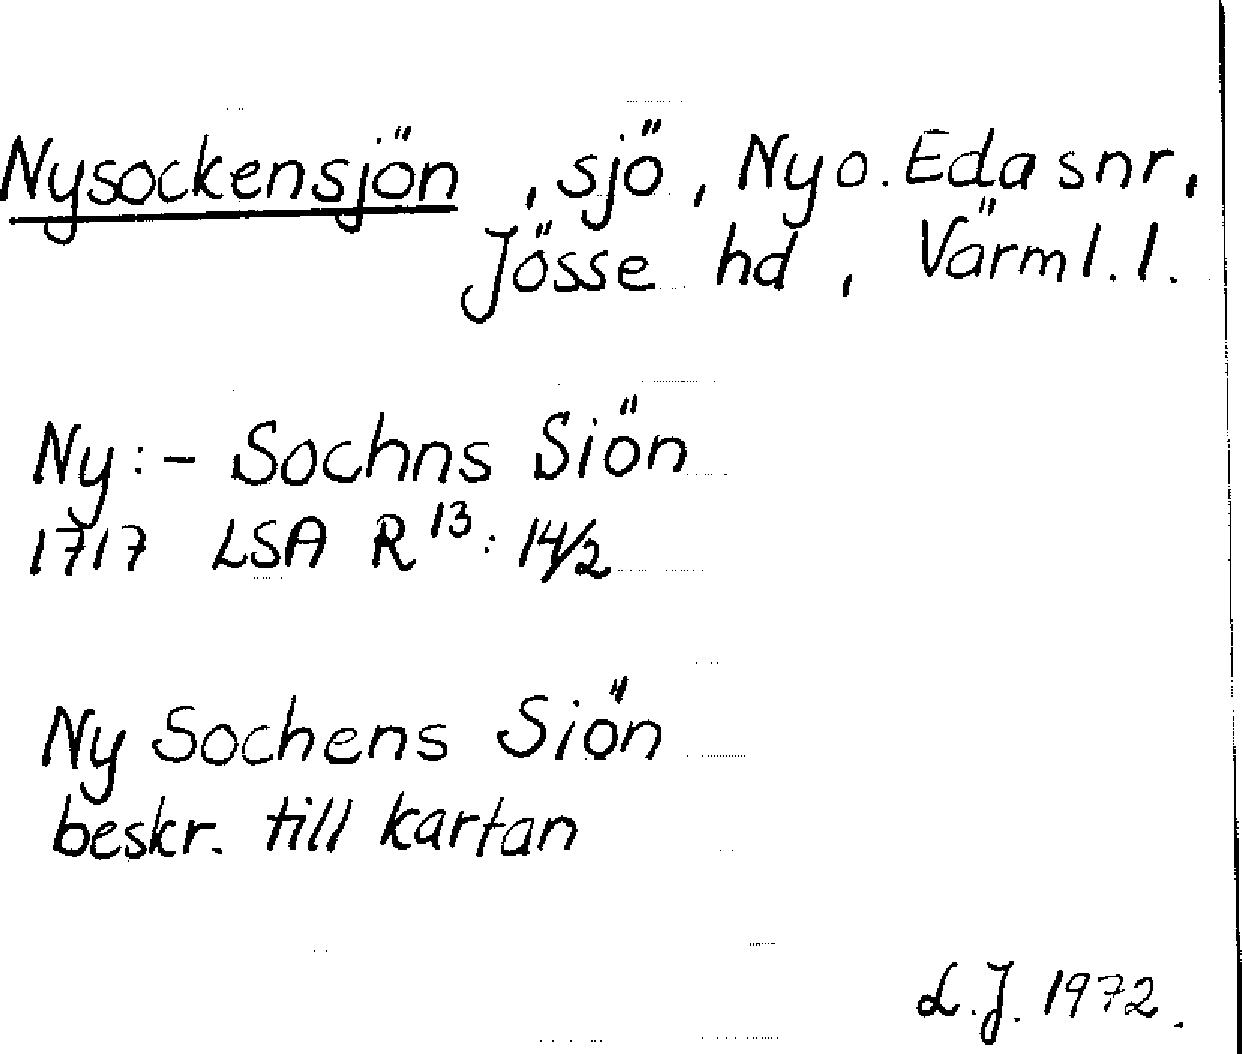 Nysockensjön, sjö, Ny o. Eda snr,
Jösse hd, Värml. l.
Ny:- Sochns Siön
1717 LSA R 13: 14/2
Ny Sochens Siön
beskr. till kartan
L.J. 1972.